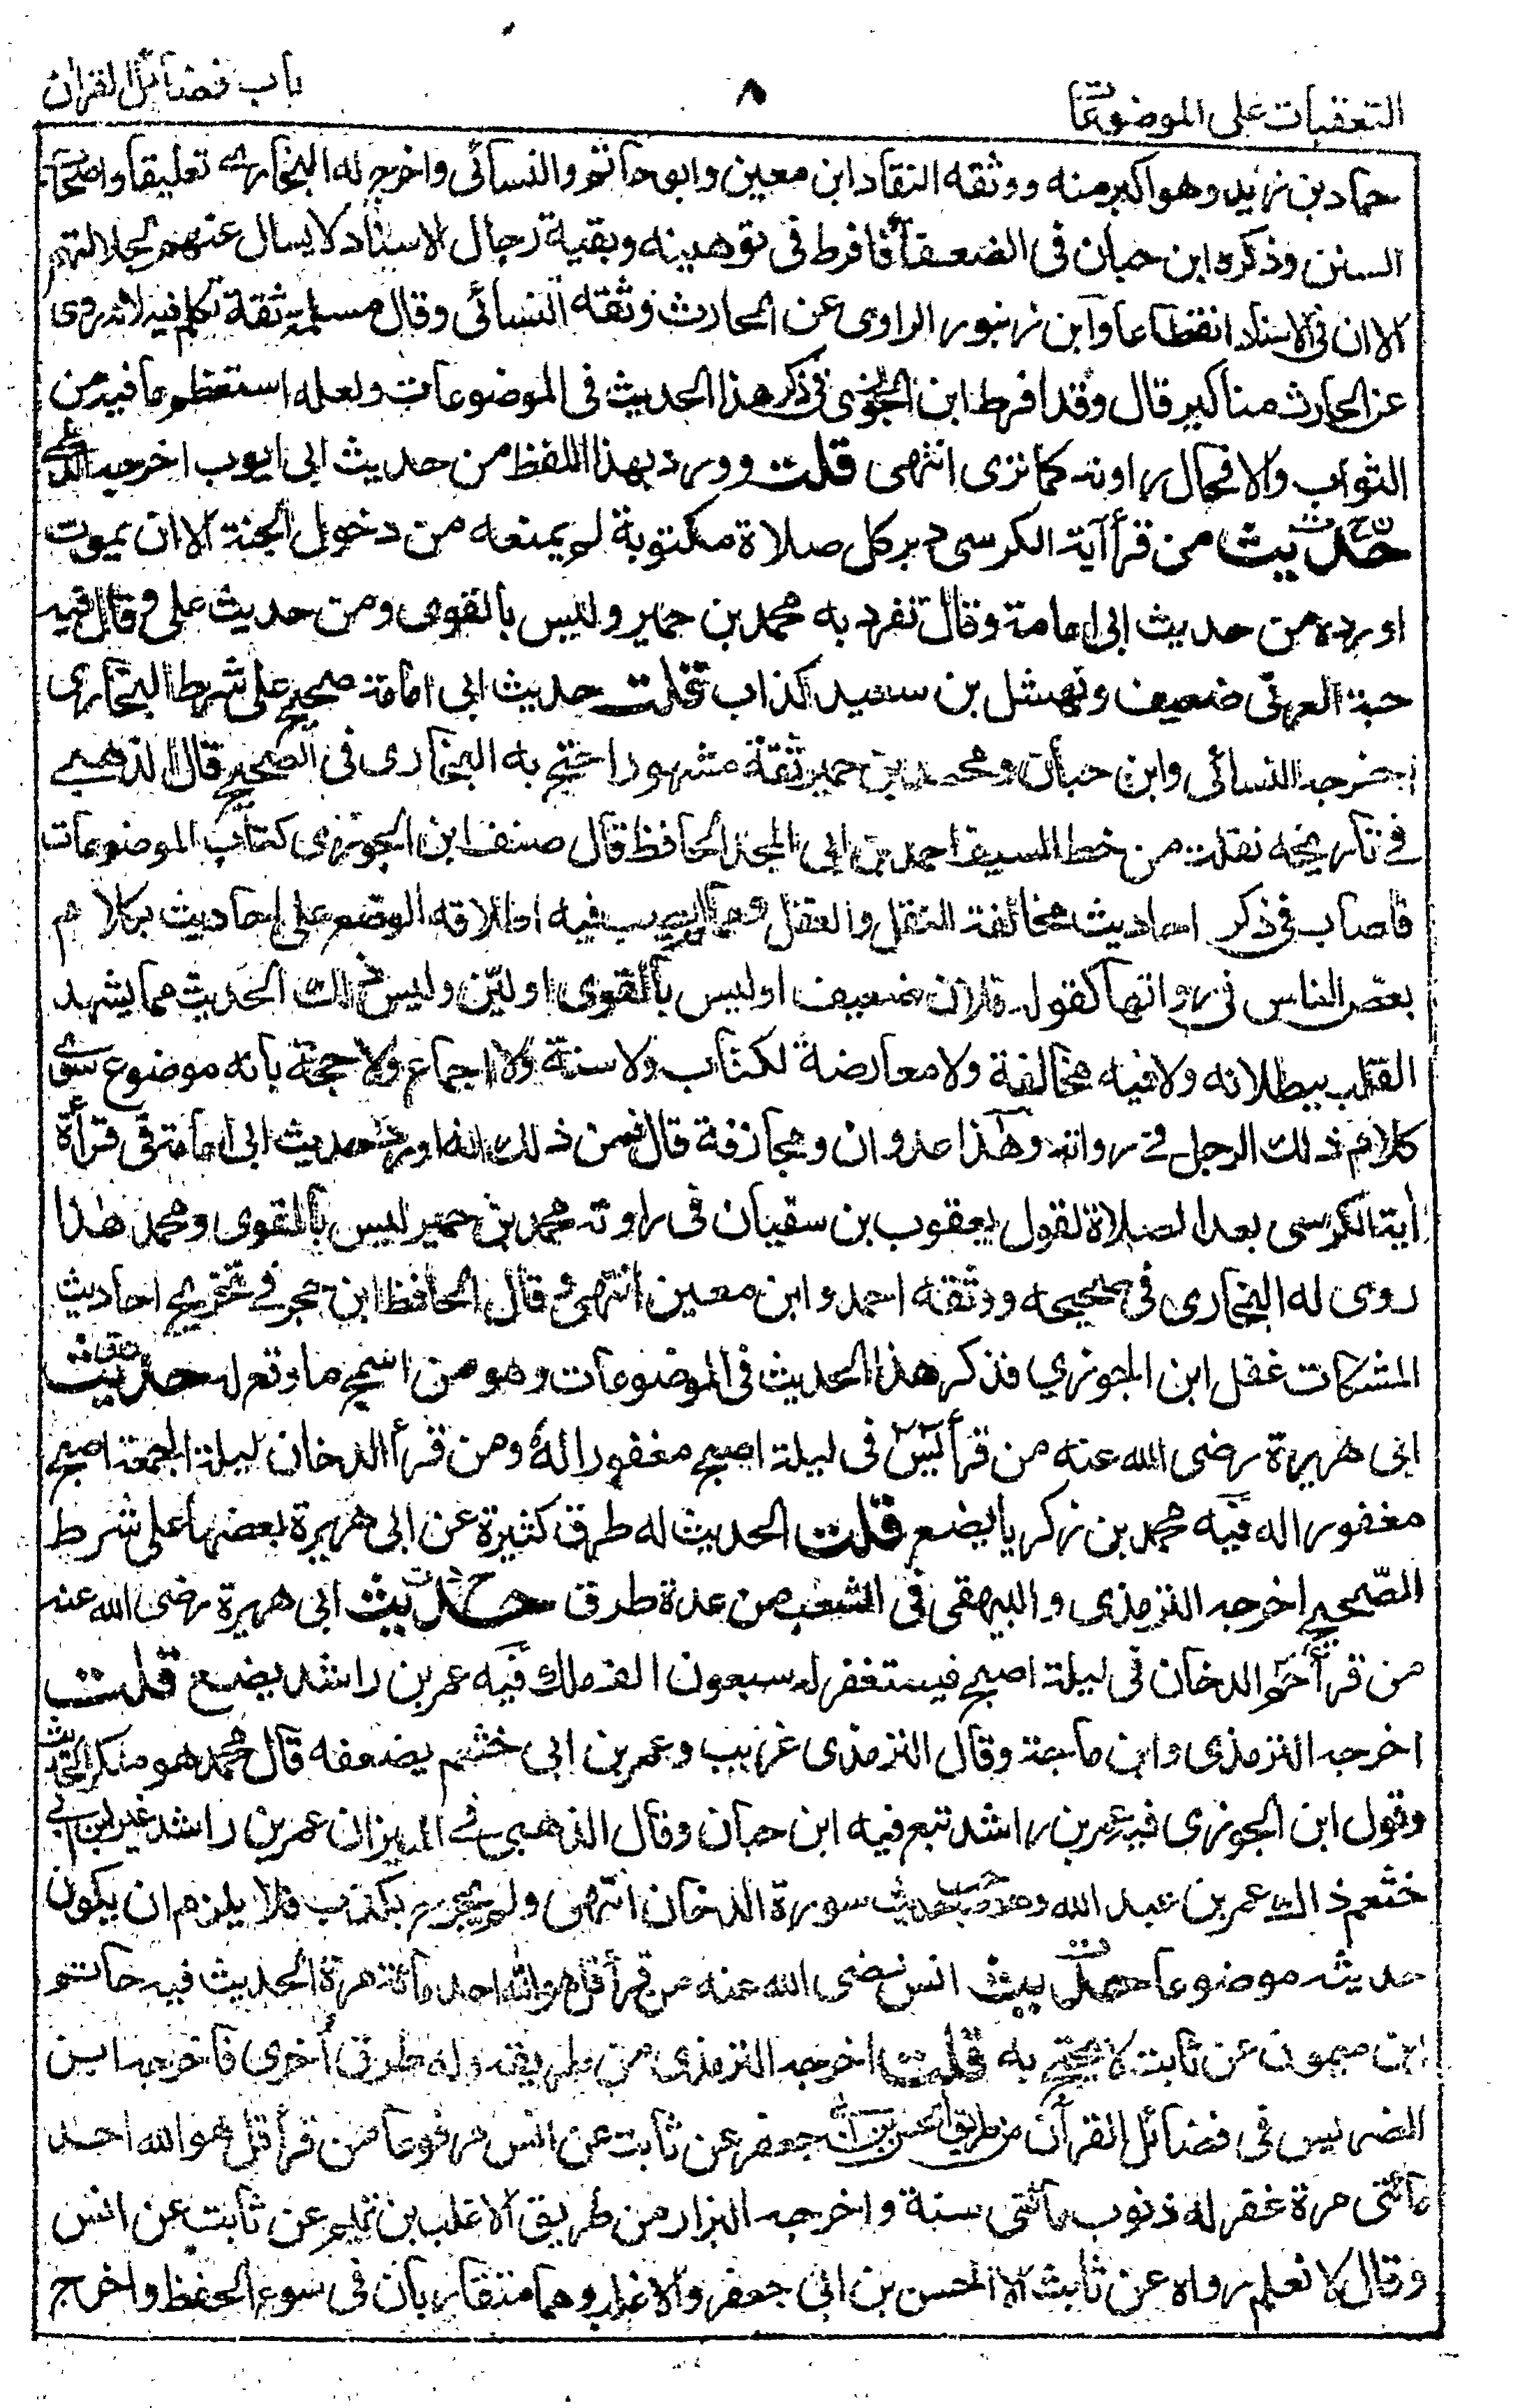 التعقبات على الموضوعات
٨
باب فضائل القرآن
حماد بن زيد وهو اكبر منه ووثقه النقاد ابن معين وابو حاتم والنسائى واخرج له البخارى تعليقا واصحاب
السنن وذكره ابن حبان فى الضعفاء فافرط فى توهينه وبقية رجال الاسناد لا يسال عنهم لجلالتهم
الا ان فى الاسناد انقطاعا وابن زنبور الراوى عن الحارث وثقه النسائى وقال مسلمة ثقة تكلم فيه لانه روى
عن الحارث مناكير قال وقد افرط ابن الجوزى فى ذكر هذا الحديث فى الموضوعات ولعله استعظم ما فيه من
الثواب والا فحال راوته كما ترى انتهى قلت وورد بهذا اللفظ من حديث ابى ايوب اخرجه الديلمى
حديث من قرأ آية الكرسى دبر كل صلاة مكتوبة لم يمنعه من دخول الجنة الا ان يموت
اورده من حديث ابى امامة وقال تفرد به محمد بن حمير وليس بالقوى ومن حديث على وقال فيه
حبة العرنى ضعيف ونهشل بن سعيد كذاب قلت حديث ابى امامة صحيح على شرط البخارى
اخرجه النسائى وابن حبان ومحمد بن حمير ثقة مشهور احتج به البخارى فى الصحيح قال الذهبى
فى تاريخه نقلت من خط السيف احمد بن ابى المجد الحافظ قال صنف ابن الجوزى كتاب الموضوعات
فاصاب فى ذكر احاديث مخالفة النقل والعقل ومما لم يصب فيه اطلاقه الوضع على احاديث بكلام
بعض الناس فى رواتها كقوله فلان ضعيف او ليس بالقوى او لين وليس ذلك الحديث مما يشهد
القلب ببطلانه ولا فيه مخالفة ولا معارضة لكتاب ولا سنة ولا اجماع ولا حجة بانه موضوع سوى
كلام ذلك الرجل فى رواته وهذا عدوان ومجازفة قال فمن ذلك انه اورد حديث ابى امامة فى قرأة
أية الكرسى بعد الصلاة لقول يعقوب بن سفيان فى راوته محمد بن حمير ليس بالقوى ومحمد هذا
روى له البخارى فى صحيحه ووثقه احمد وابن معين انتهى وقال الحافظ ابن حجر فى تخريج احاديث
المشكات غفل ابن الجوزي فذكر هذا الحديث فى الموضوعات وهو من اسمج ما وقع له حديث
ابى هريرة رضى الله عنه من قرأ يس فى ليلة اصبح مغفورا له ومن قرأ الدخان ليلة الجمعة اصبح
مغفورا له فيه محمد بن زكريا يضع قلت الحديث له طرق كثيرة عن ابى هريرة بعضها على شرط
الصحيح اخرجه الترمذى والبيهقى فى الشعب من عدة طرق حديث ابى هريرة رضى الله عنه
من قرأ حم الدخان فى ليلة اصبح فيستغفر له سبعون الف ملك فيه عمر بن راشد يضع قلت
اخرجه الترمذى وابن ماجة وقال الترمذى غريب وعمر بن ابى خثعم يضعفه قال محمد هو منكر الحديث
وقول ابن الجوزى فيه عمر بن راشد تبع فيه ابن حبان وقال الذهبى فى الميزان عمر بن راشد غير ابن ابى
خثعم ذاك عمر بن عبد الله وهو صاحب حديث سورة الدخان انتهى ولم يجرح بكذب فلا يلزم ان يكون
حديثه موضوعا حديث انس رضى الله عنه من قرأ قل هو الله احد مائة مرة الحديث فيه حاتم
ابن ميمون عن ثابت لا يحتج به قلت اخرجه الترمذى من طريقه وله طرق أخرى فاخرجه ابن
الضريس فى فضائل القرآن من طريق الحسن بن ابى جعفر عن ثابت عن انس مرفوعا من قرأ قل هو الله احد
مائتى مرة غفر له ذنوب مائتى سنة واخرجه البزار من طريق الاغلب بن تميم عن ثابت عن انس
وقال لا نعلم رواه عن ثابت الا الحسن بن ابى جعفر والاغلب وهما متقاربان فى سوء الحفظ واخرج